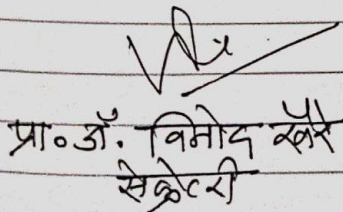 प्रा॰ डॉ. विनोद खैरे
सेक्रेटरी